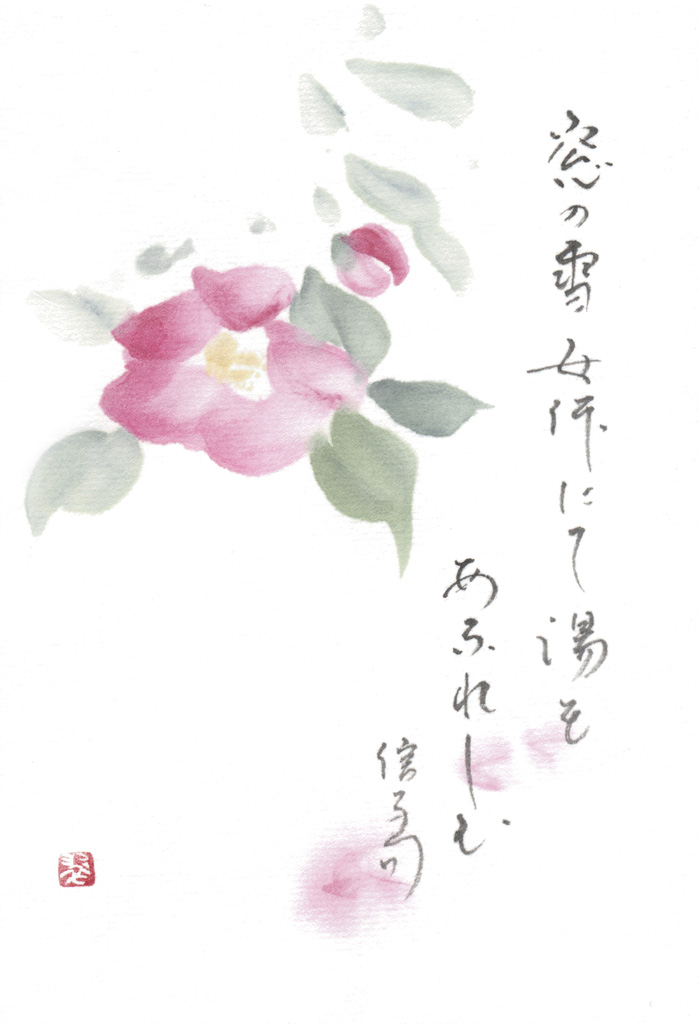 窓の雪女体にて湯を
あふれしむ
信子